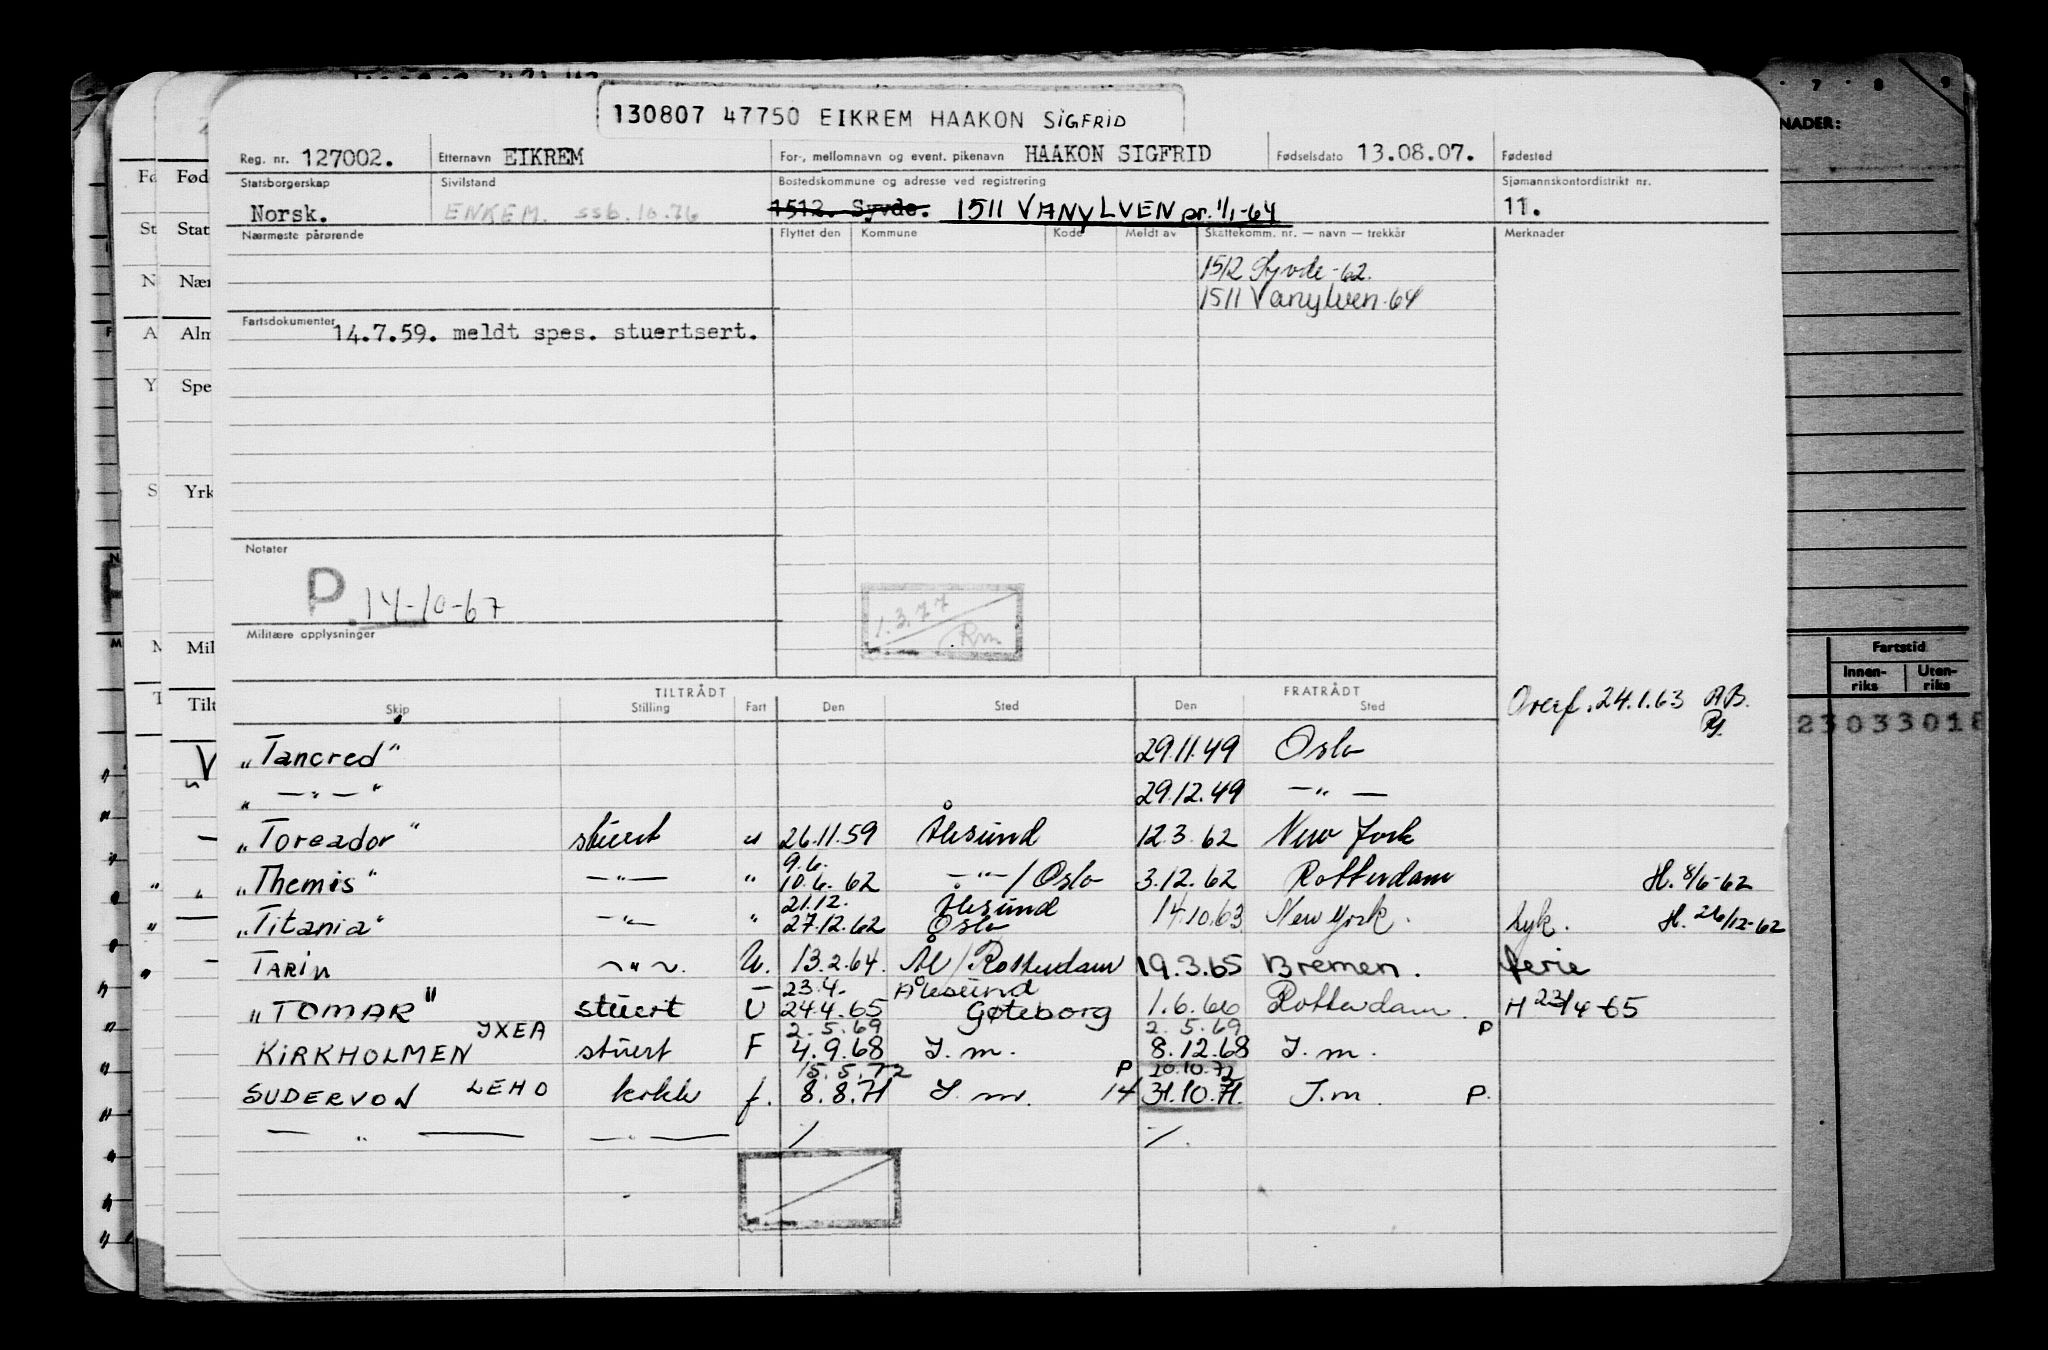 130807 47750 EIKREM HAAKON SiGFRiD
Reg. nr. 127002. Etternavn EIKREM For-, mellomnavn og event. pikenavn HAAKON SIGFRID Fødselsdato 13.08.07. Fødested
Statsborgerskap Sivilstand Bostedskommune og adresse ved registrering Sjømannskontordistrikt nr.
Norsk. ENKEM. ssb.10.76 1512. Syvde. 1511 VANYLVEN pr. 1/1-64 11.
Nærmeste pårørende Flyttet den Kommune Kode Meldt av Skattekomm. nr. — navn — trekkår Merknader
1512 Syvde -62.
1511 Vanylven -64
Fartsdokumenter 14.7.59. meldt spes. stuertsert.
Notater
P 14-10-67
1.3.77
Rm
Militære opplysninger
TILTRÅDT FRATRÅDT
Skip Stilling Fart Den Sted Den Sted
Overf. 24.1.63 AB.
"Tancred" 29.11.49 Oslo
" — " — " 29.12.49 — " —
"Toreador" stuert " 26.11.59 Ålesund 12.3.62 New York
9.6.
"Themis" — " — " 10.6.62 — " — / Oslo 3.12.62 Rotterdam H. 8/6-62
21.12. Ålesund
"Titania" — " — " 27.12.62 Oslo 14.10.63 New York. syk. H. 26/12-62
TARiN — " — U. 13.2.64. Ål / Rotterdam 19.3.65 Bremen. ferie
23.4. Ålesund
"TOMAR" stuert U 24.4.65 Gøteborg 1.6.66 Rotterdam. H 23/4-65
JXEA 2.5.69 2.5.69 P
KiRKHOLMEN stuert F 4.9.68 I.m. 8.12.68 I.m.
15.5.72 P 20.10.72
SUDERVON LEHO kokk f. 8.8.71 I.m. 14 31.10.71. I.m. P.
— " — — " — / /.
NADER:
Fartstid
Innen-
riks
Uten-
riks
23033018